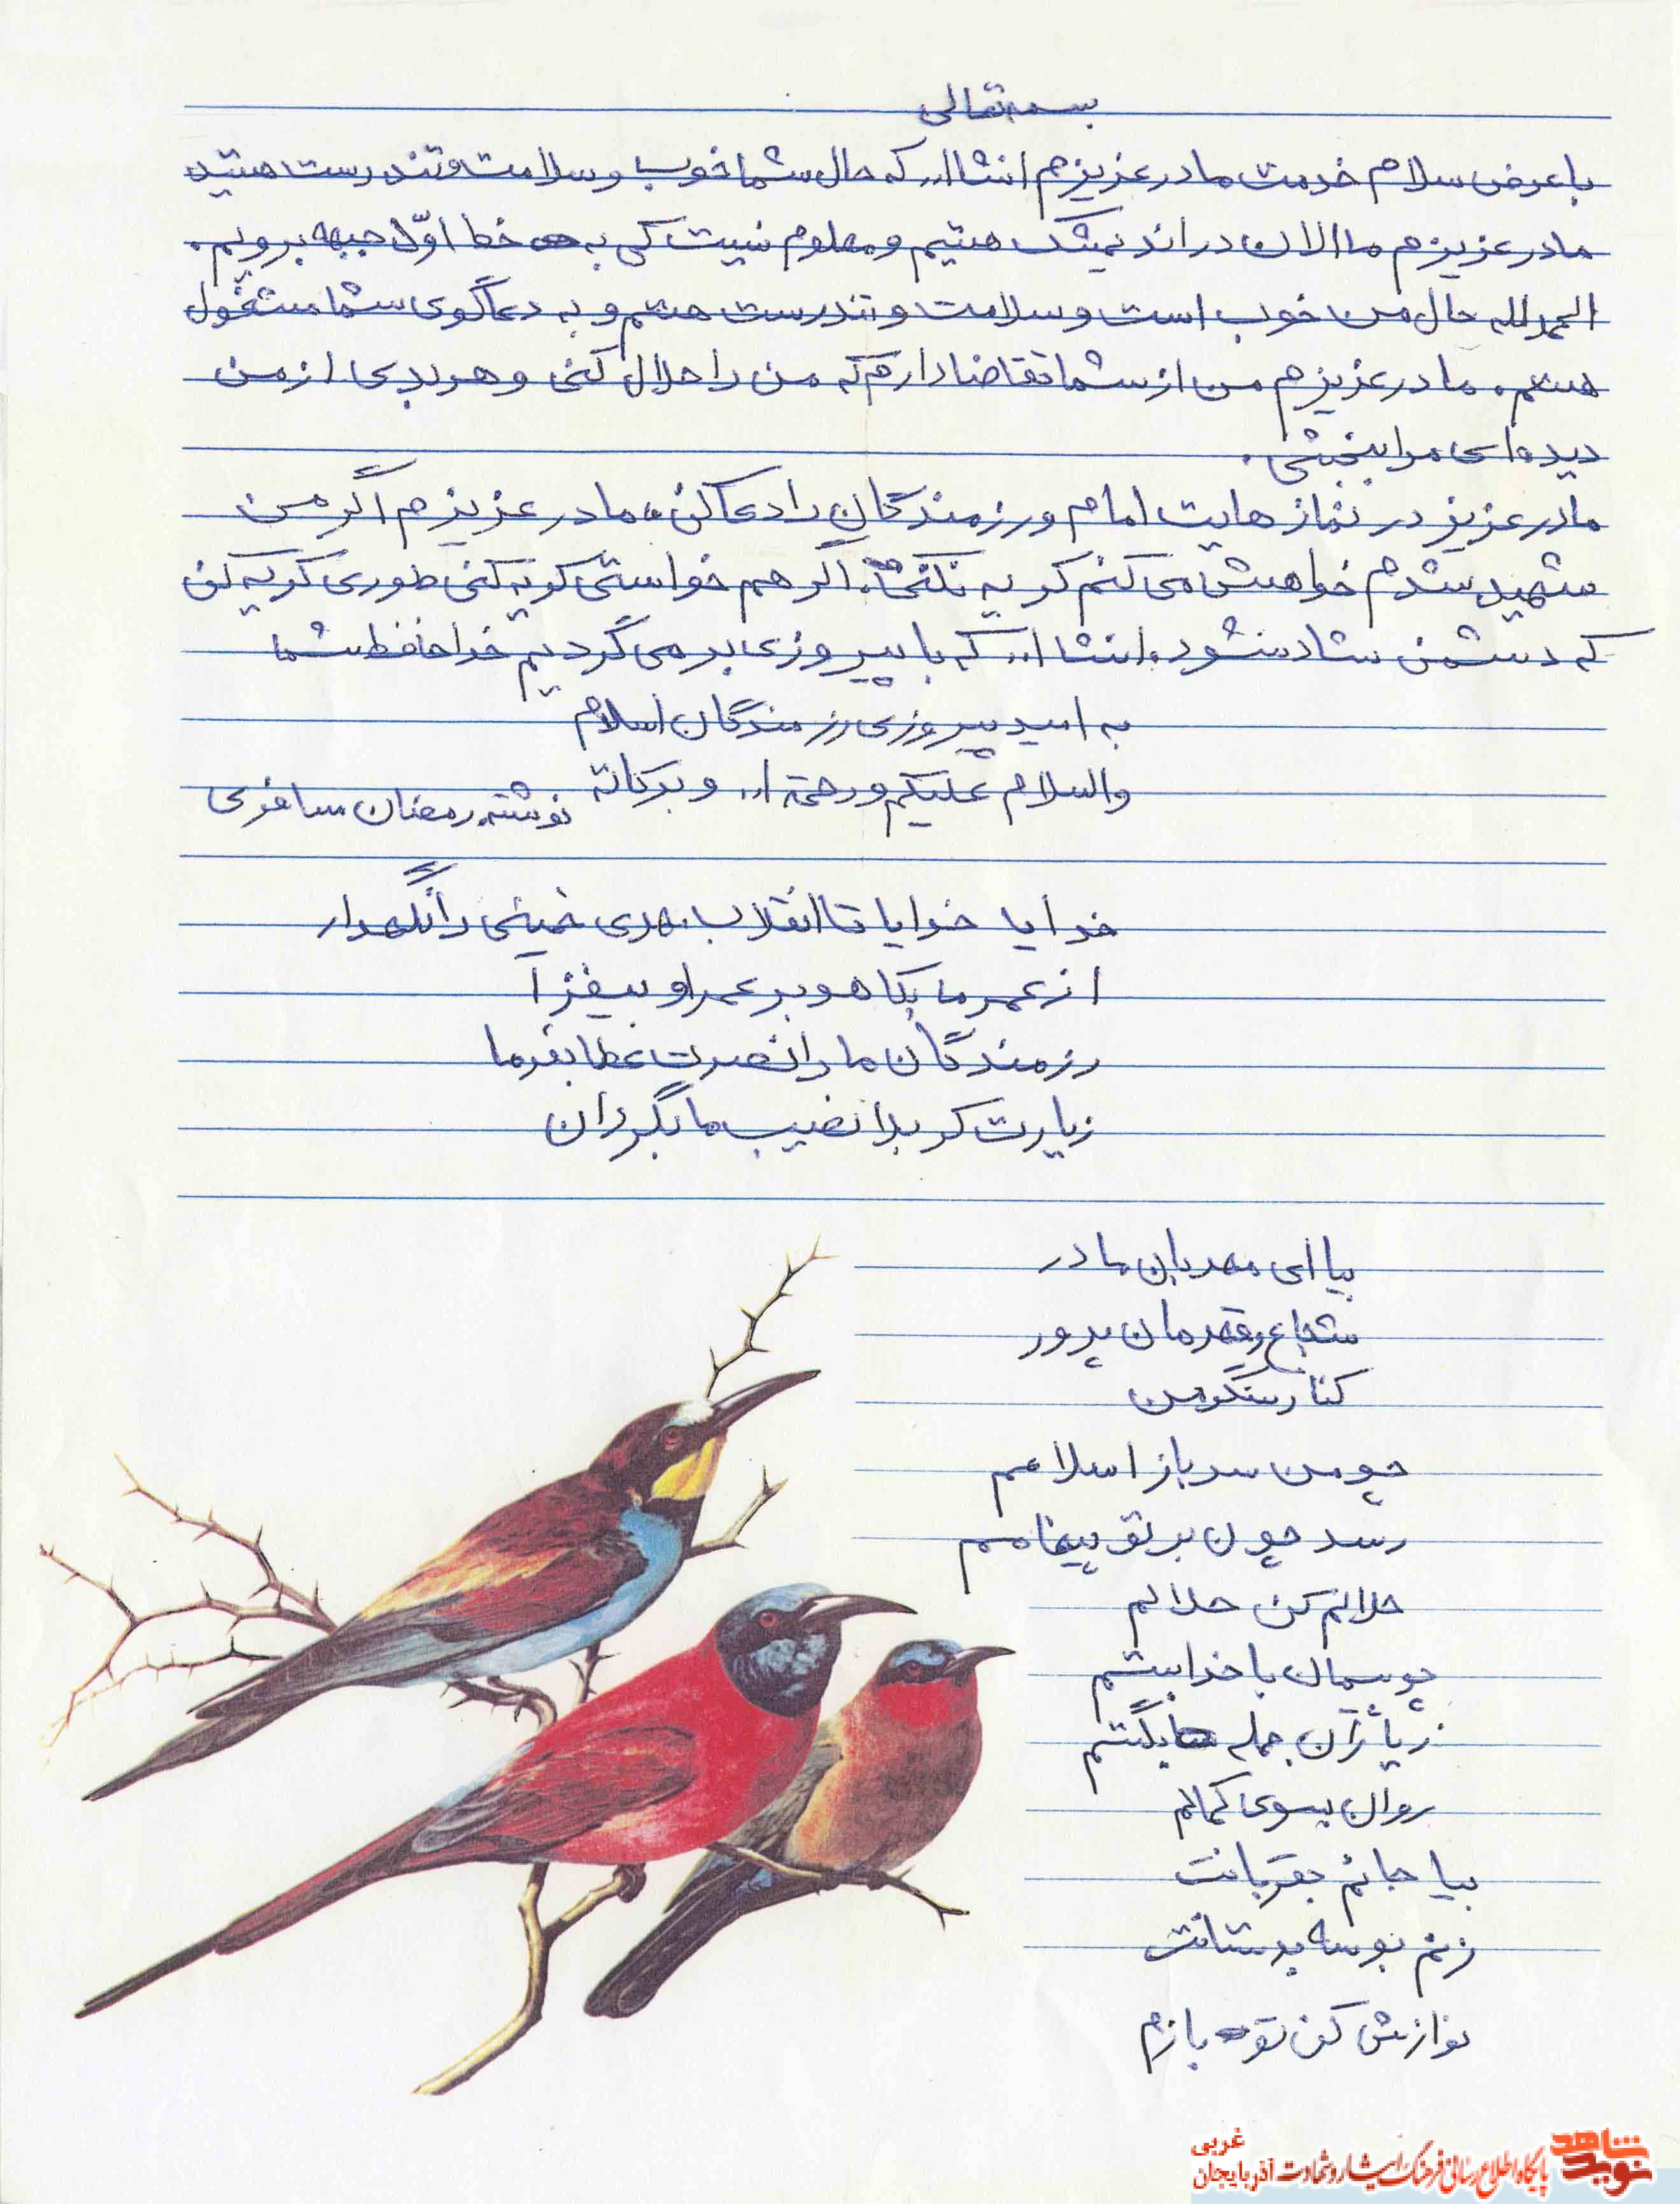 بسمه تعالی
با عرض سلام خدمت مادر عزیزم انشاا.. که حال شما خوب و سلامت و تندرست هستید
مادر عزیزم ما الان در اندیمشک هستیم و معلوم نیست کی به خط اوّل جبهه برویم.
الحمدلله حال من خوب است و سلامت و تندرست هستم و به دعاگوی شما مشغول
هستم. مادر عزیزم من از شما تقاضا دارم که من را حلال کنی و هر بدی از من
دیده‌ای مرا ببخشی.
مادر عزیز در نماز هایت امام و رزمندگان را دعا کن. مادر عزیزم اگر من
شهید شدم خواهش می کنم گریه نکنی. اگر هم خواستی گریه کنی طوری گریه کن
که دشمن شاد نشود. انشاا.. که با پیروزی بر می گردیم خداحافظ شما
به امید پیروزی رزمندگان اسلام
والسلام علیکم و رحمة ا.. و برکاته
نوشته رمضان مسافری
خدایا خدایا تا انقلاب مهدی خمینی را نگهدار
از عمر ما بکاه و بر عمر او بیفزا
رزمندگان ما را نصرت عطا بفرما
زیارت کربلا نصیب ما بگردان
بیا ای مهربان مادر
شجاع و قهرمان پرور
کنار سنگر من
چو من سرباز اسلامم
رسد چون بر تو پیغامم
حلالم کن حلالم
چو پیمان با خدا بستم
ز یاران جمله بگسستم
روان بسوی کمالم
بیا جانم بقربانت
زنم بوسه بدستانت
نوازش کن تو بازم
نوید شاهد
پایگاه اطلاع رسانی فرهنگ ایثار و شهادت آذربایجان غربی